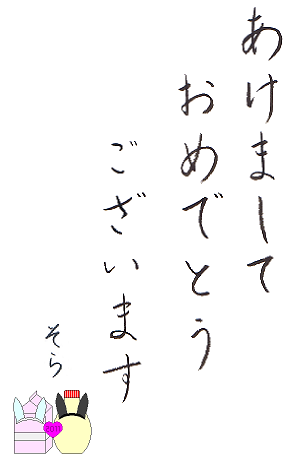 あけまして
おめでとう
ございます
そら